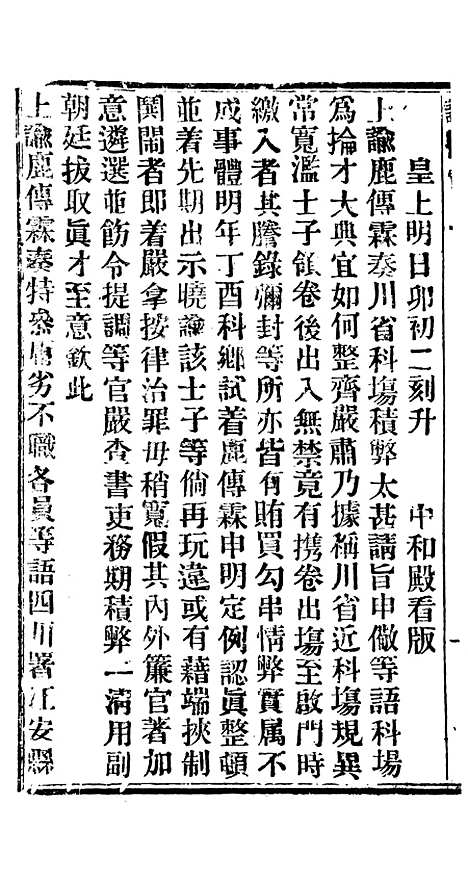 皇上明日卯初二刻升　中和殿看版
上諭鹿傳霖奏川省科塲積弊太甚請旨申儆等語科塲
爲掄才大典宜如何整齊嚴肅乃據稱川省近科塲規異
常寬濫士子領卷後出入無禁竟有携卷出塲至啟門時
繳入者其謄錄彌封等所亦皆有賄買勾串情弊實属不
成事體明年丁酉科鄉試着鹿傳霖申明定例認眞整頓
並着先期出示曉諭該士子等倘再玩違或有藉端挾制
鬨閙者即着嚴拿按律治罪毋稍寬假其內外簾官著加
意遴選並飭令提調等官嚴查書吏務期積弊一淸用副
朝廷拔取眞才至意欽此
上諭鹿傳霖奏特叅庸劣不職各員等語四川署江安縣